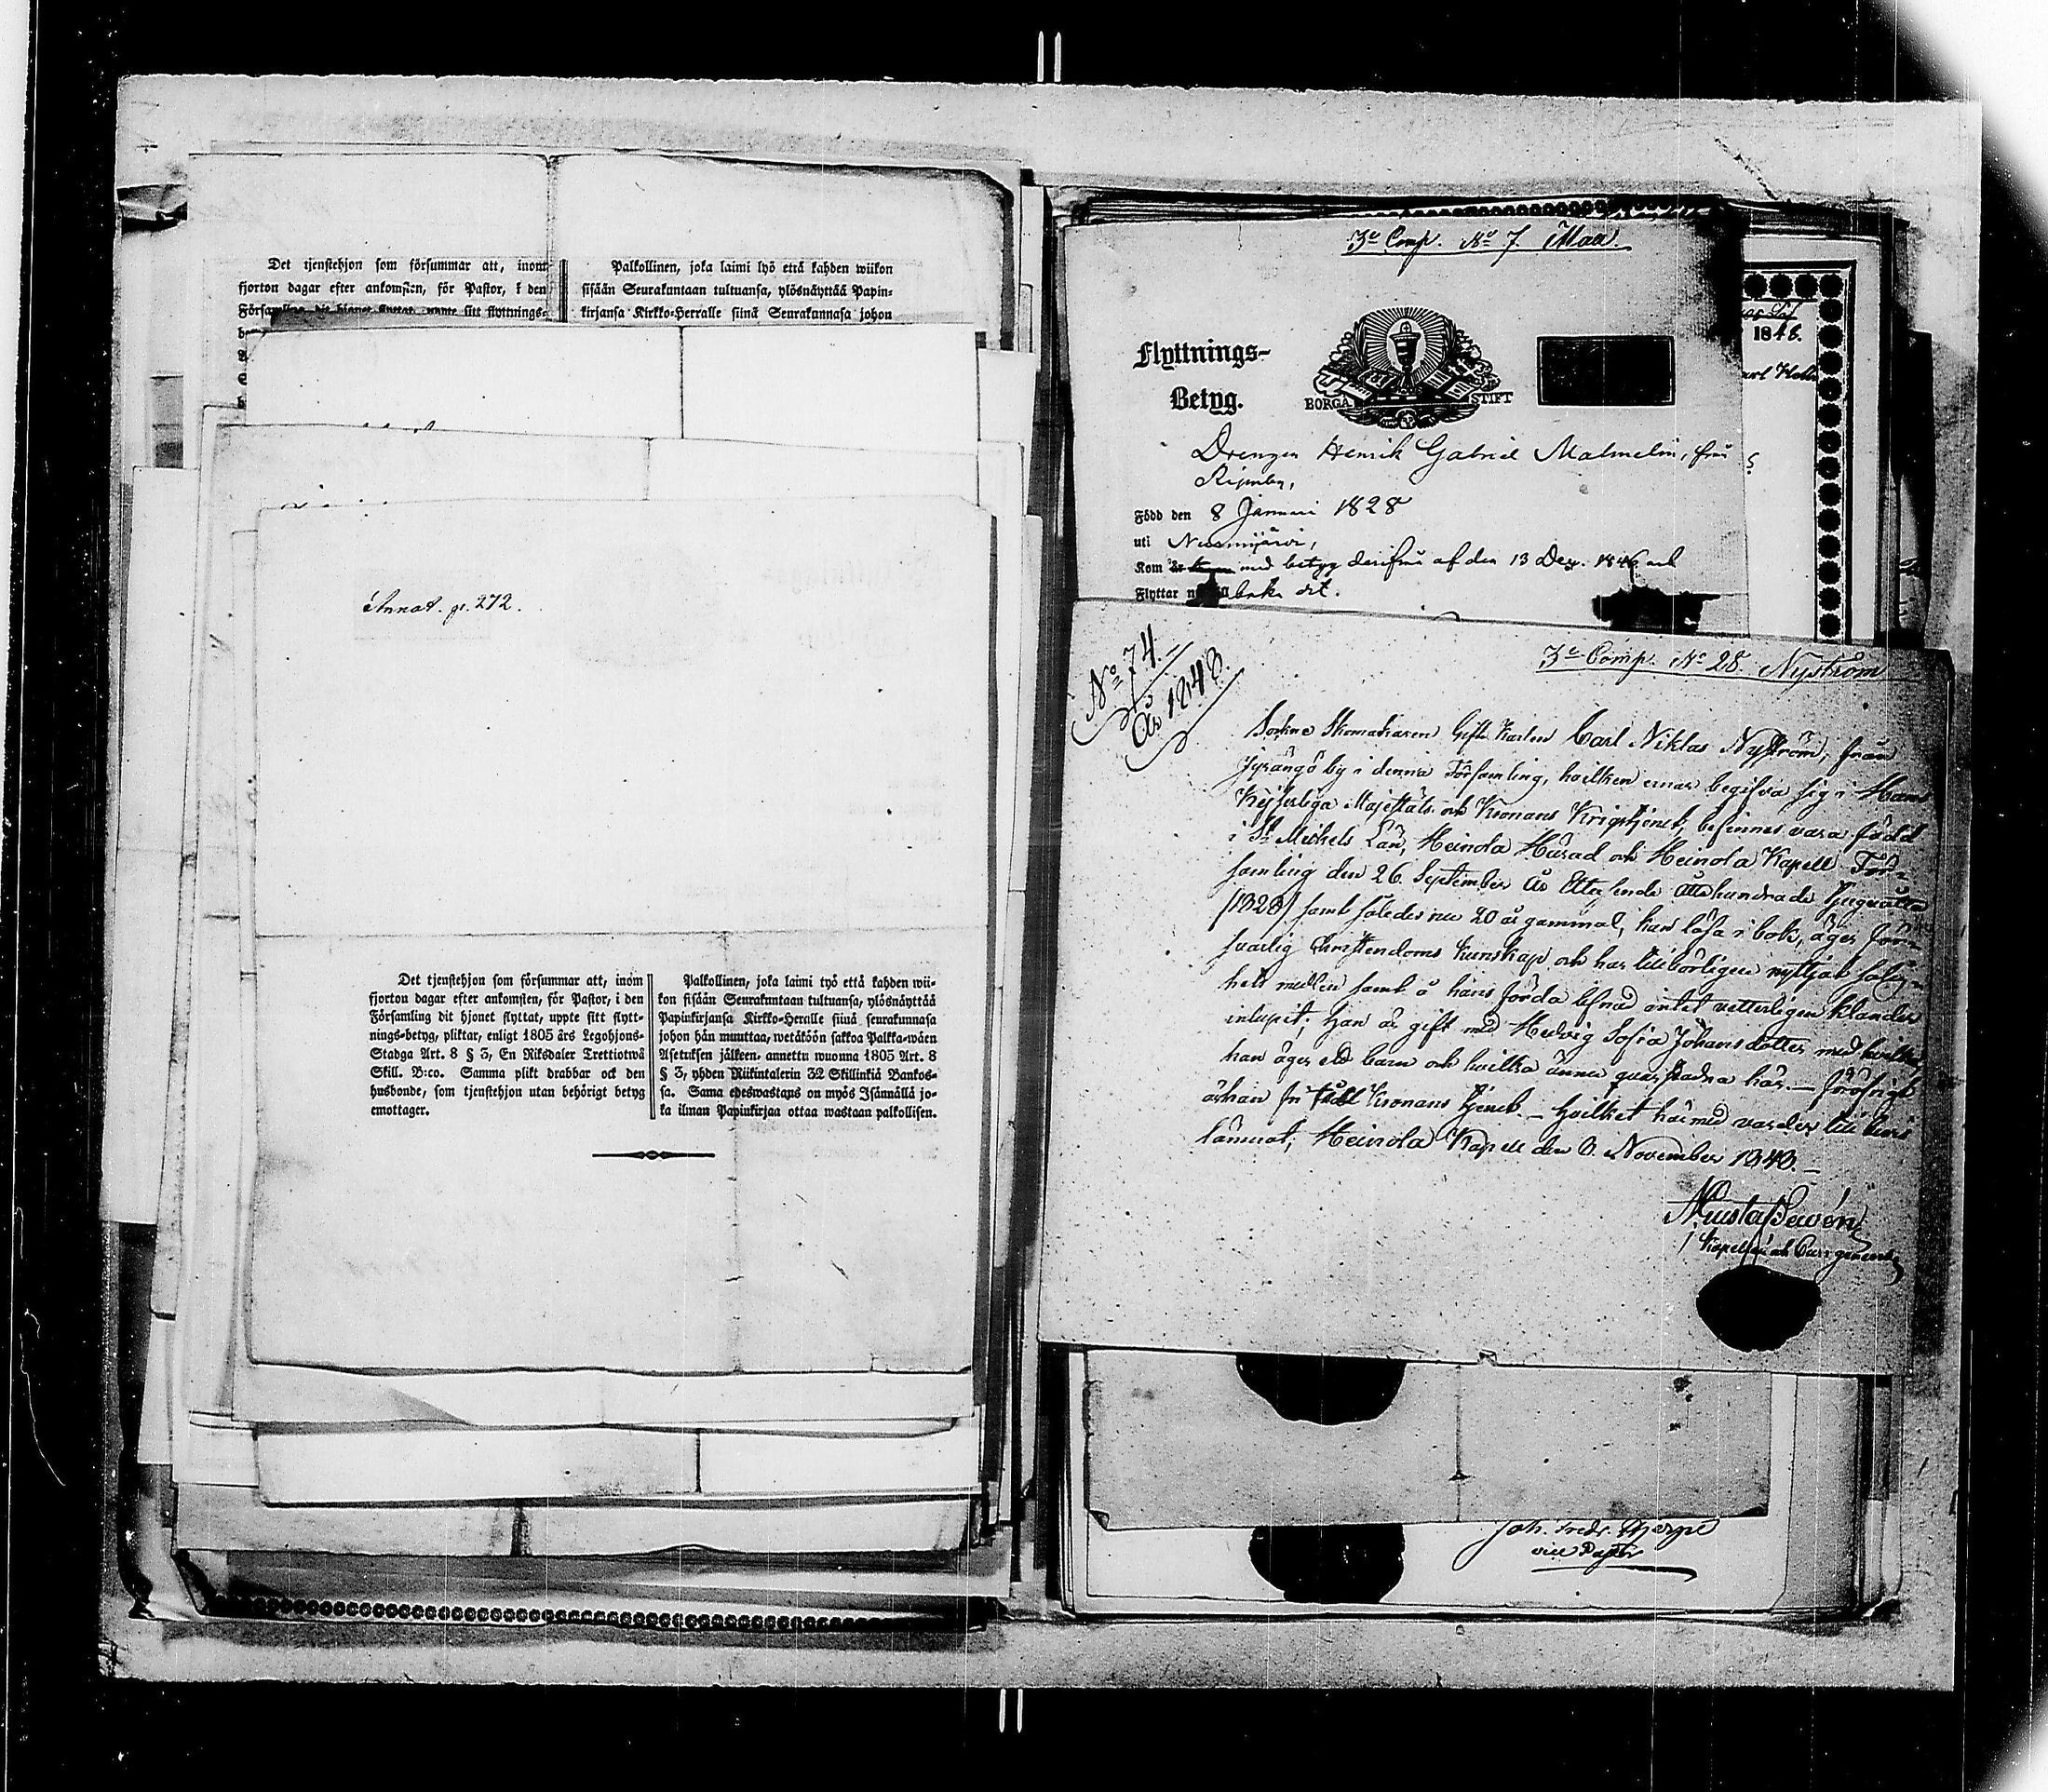 Det tjenstehjon som försummar att, inom
fjorton dagar efter ankomsten, för Pastor, i den
Församling dit hjonet flyttat, uppte sitt flyttnings-
Palkollinen, joka laimi lyö että kahden wiikon
sisään Seurakuntaan tultuansa, ylösnäyttää Papin-
kirjansa Kirkko-Herralle siinä Seurakunnasa johon
Annot. pr. 272.
Det tjenstehjon som försummar att, inom
fjorton dagar efter ankomsten, för Pastor, i den
Församling dit hjonet flyttat, uppte sitt flytt-
nings-betyg, pliktar, enligt 1805 års Legohjons-
Stadga Art. 8 § 3, En Riksdaler Trettiotwå
Skill. B:co. Samma plikt drabbar ock den
husbonde, som tjenstehjon utan behörigt betyg
emottager.
Palkollinen, joka laimi työ että kahden wii-
kon sisään Seurakuntaan tultuansa, ylösnäyttää
Papinkirjansa Kirkko-Heralle siinä seurakunnasa
johon hän muuttaa, wetäköön sakkoa Palkka-wäen
Asetuksen jälkeen, annettu wuonna 1805 Art. 8
§ 3, yhden Riikintalerin 32 Skillinkiä Bankos-
sa. Sama edeswastaus on myös Isännällä jo-
ka ilman Papinkirjaa ottaa wastaan palkollisen.
3e Comp. No 7. Maa
Flyttnings-
Betyg.
BORGÅ STIFT
1848.
Drengen Henrik Gabriel Malmelin, från
Född den 8 Januari 1828
uti Nurmijärvi,
Kom med betyg derifrån af den 13 Dec. 1846 och
Flyttar
No 74.
År 1848.
3e Comp. No 28. Nyström
Sockne Skomakaren Gifte Karlen Carl Niklas Nyström, från
Jyrängö by i denna Församling, hvilken ernar begifva sig i Hans
Kejserliga Majestäts och Kronans Krigstjenst, befinnes vara född
i St Michels Län, Heinola Härad och Heinola Kapell För-
samling den 26. September År Ettusende Åttahundrade tjuguåtta
/1828/ samt således nu 20 år gammal, kan läsa i bok, äger för-
svarlig Christendoms kunskap och har tillbörligen nyttjat salig-
hets medlen samt å hans förda lefnad intet vetterligen klander
inlupit; han är gift med Hedvig Sofia Johansdotter med hvilken
han äger ett barn och hvilka ännu quarstadna här. — För öfrigt
är han fri till Kronans tjenst — Hvilket härmed varder till bevis
lämnat; Heinola Kapell den 8. November 1848. —
Joh. Fredr.
vice Pastor